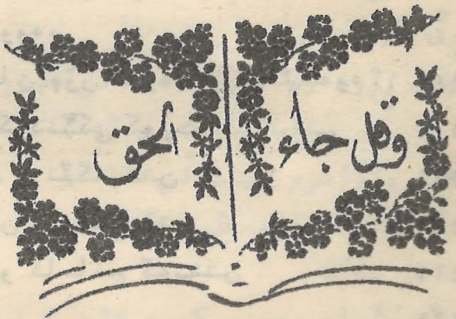 وقل جاء الحق